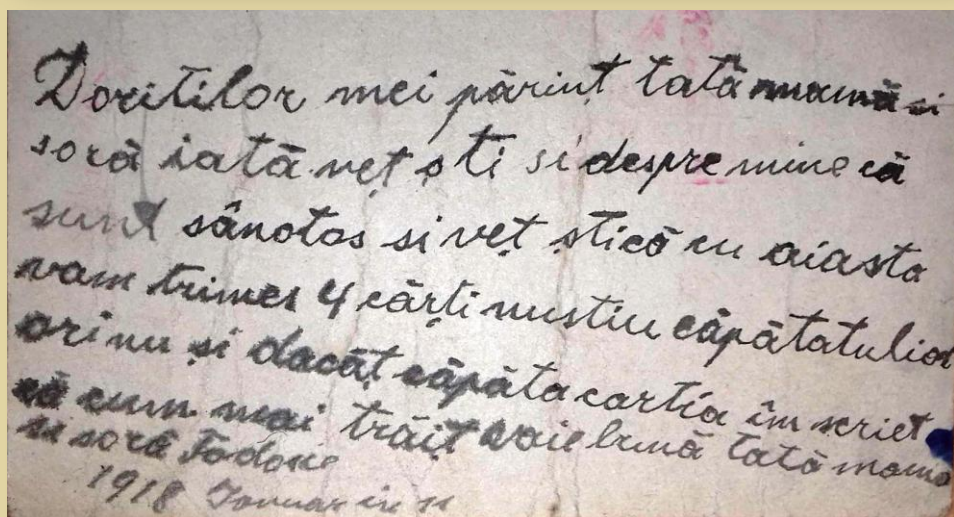 Doritilor mei părinț tată mamă si
soră iată veț ști si despre mine că
sunt sânotos si veț ștică cu aiasta
vam trimes 4 cărți nustiu căpătatulioț
ori nu și dacăț căpăta cartia îm scrieț
că cum mai trăiț voie bună tată mama
si soră Todosie
1918 Januar in 11